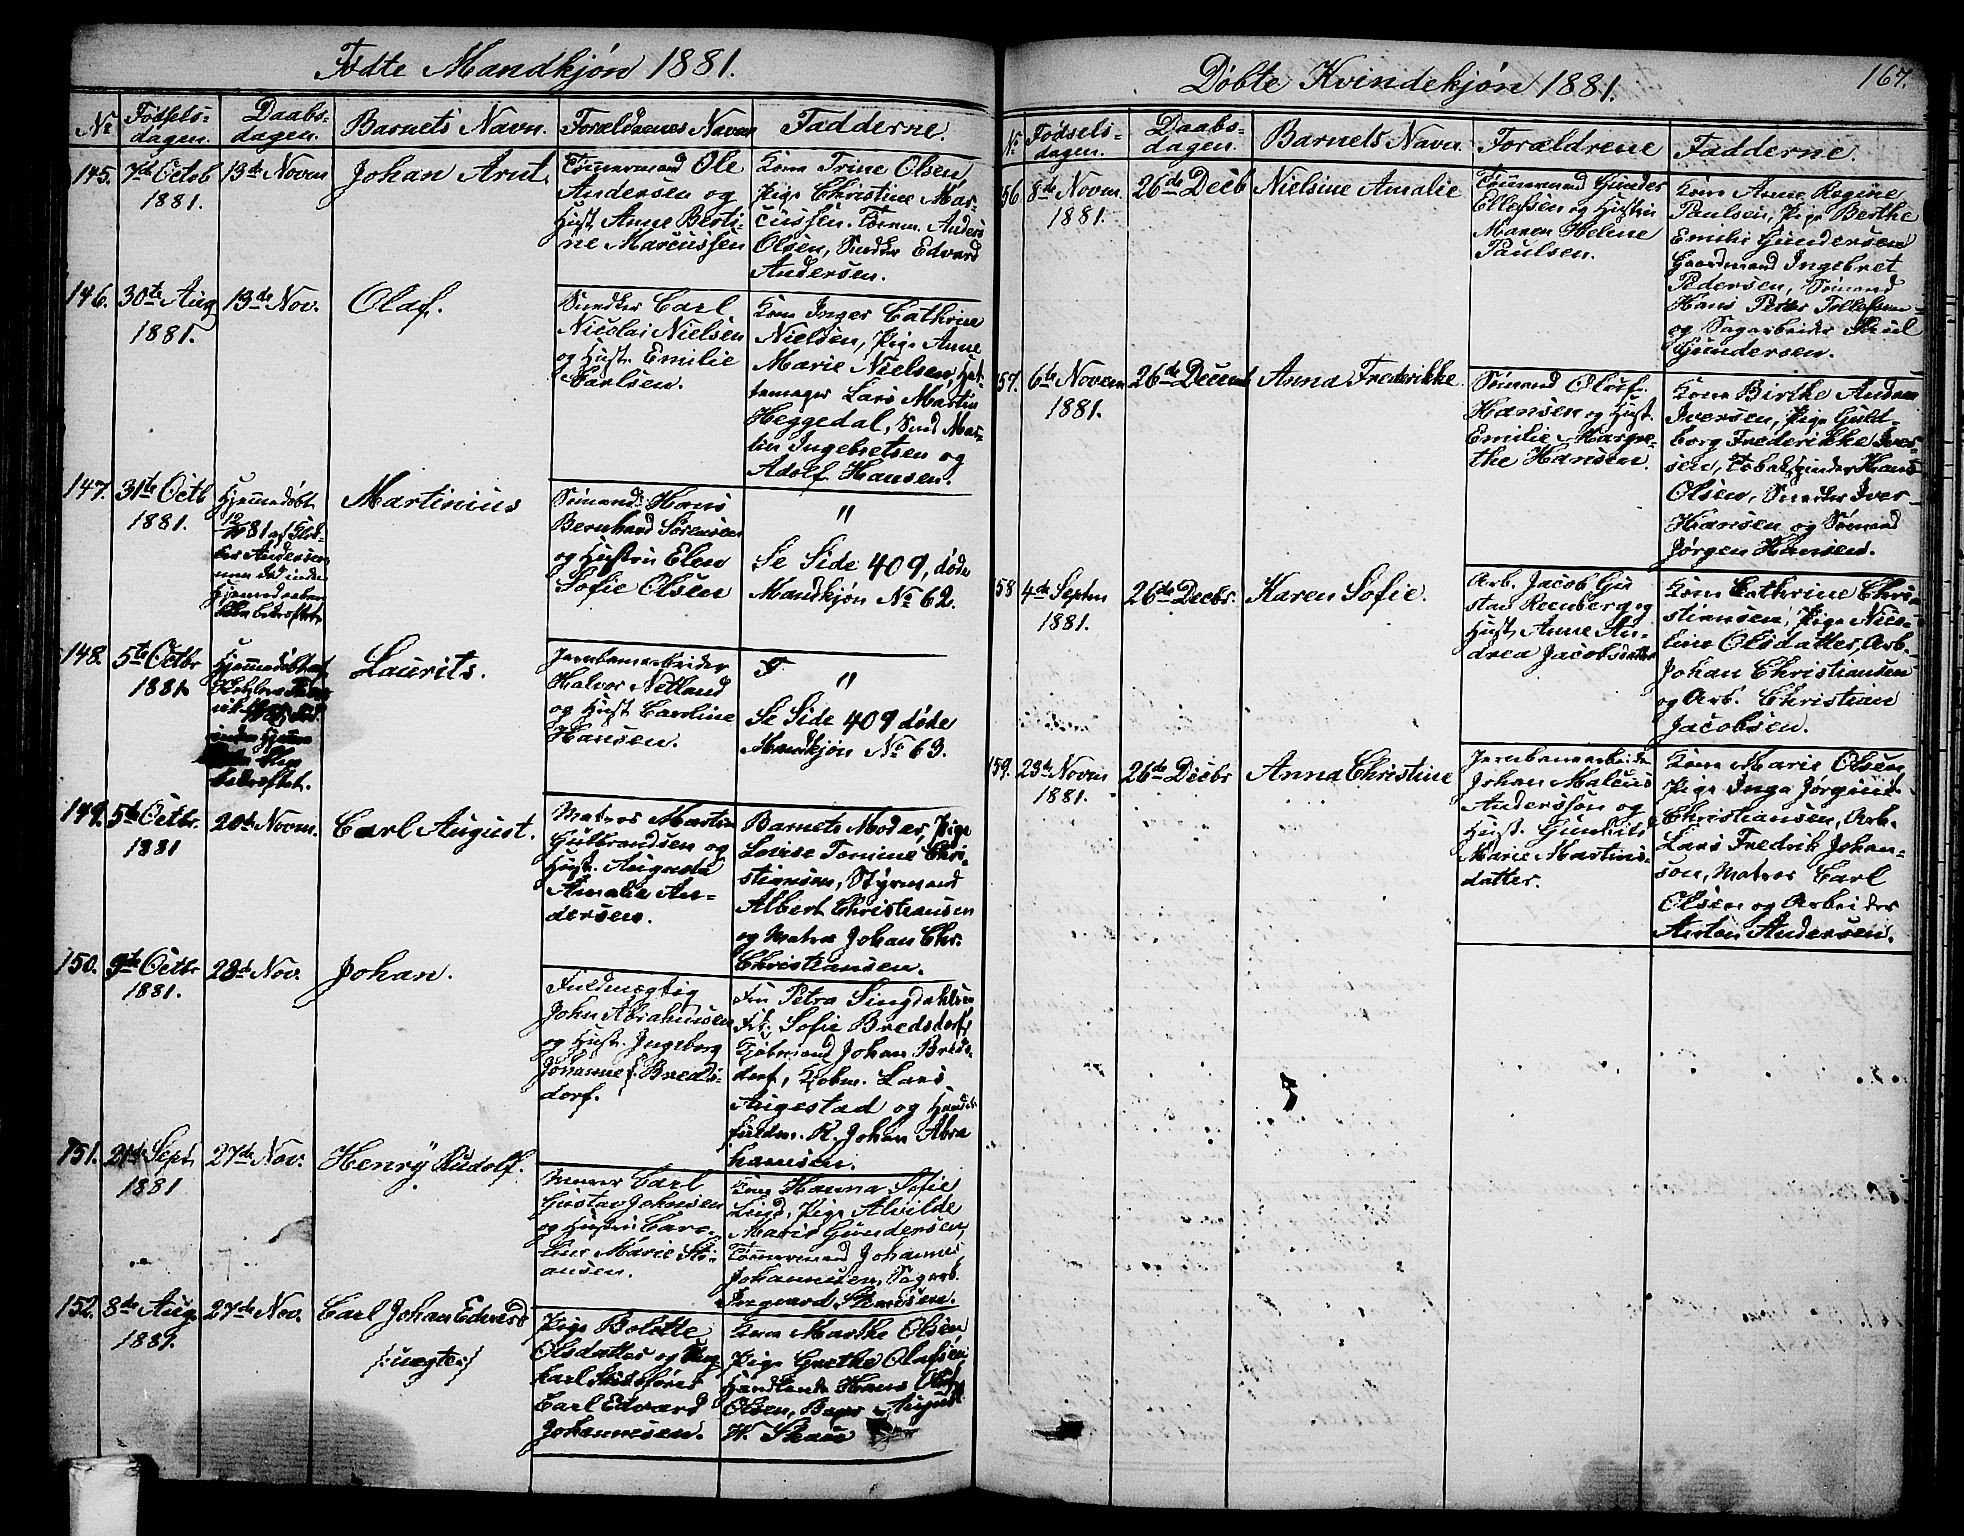 Fødte Mandkjøn 1881.
No
Fødsels-
dagen.
Daabs-
dagen.
Barnets Navn.
Forældrenes Navn
Fadderne.
145.
7de Octob
1881.
13de Novm
Johan Arnt.
Tømmermand Ole
Andersen og
Hust. Anne Berti-
ne Marcussen
Kone Trine Olsen,
Pige Christine Mar-
cussen. Tømm. Anders
Olsen, Snedker Edvard
Andersen.
146.
30te Aug
1881.
13de Nov.
Olaf.
Snedker Carl
Nicolai Nielsen
og Hust. Emilie
Carlsen.
Kone Inger Cathrine
Nielsen, Pige Anne
Marie Nielsen, Hat-
temager Lars Martin
Heggedal, Snd. Mar-
tin Ingebretsen og
Adolf Hansen.
147.
31te Octb
1881.
Hjemmedøbt
af
Andersen
men død inden
bekræftet
Martinius
Sømand Hans
Bernhard Sørensen
og Hustru Elen
Sofie Olsen
"
Se Side 409, døde
Mandkjøn No 62.
148.
5te Octbr
1881
Hjemmedøbt af
inden Hjemme
bekræftet.
Laurits.
Jernbanearbeider
Halvor Netland
og Hust. Caroline
Hansen.
"
Se Side 409 døde
Mandkjøn No 63.
149.
5te Octbr.
1881
20de Novm.
Carl August.
Matros Martin
Gulbrandsen og
Hust. Augusta
Amalie An-
dersen.
Barnets Moder, Pige
Lovise Tomine Chri-
stiansen, Styrmand
Albert Christiansen
og Matros Johan Chr.
Christiansen.
150.
9de Octbr
1881.
28de Nov.
Johan.
Fuldmægtig
John Abrahamsen
og Hust. Ingeborg
Johanne f. Breds-
dorf.
Fru Petra Singdahlsen
Frk. Sofie Bredsdorf,
Kjøbmand Johan Breds-
dorf, Kjøbm. Lars
Augestad og Handels-
fuldm. R. Johan Abra
hamsen.
151.
21de Sept.
1881
27de Nov.
Henrÿ Rudolf.
Murer Carl
Gustav Johnsen
og Hustru Caro-
line Marie
ansen.
Kone Hanna Sofie
Lind, Pige Alvilde
Marie Gundersen,
Tømmermand Johannes
Johannesen, Sagarb.
Ingvard Hansen.
152.
8de Aug.
1881.
27de Nov.
Carl Johan Edvard
/:uægte:/
Pige Bolette
Olsdatter og Ung
karl Skibsfører
Carl Edvard
Johannesen.
Kone Marthe Olsen
Pige Grethe Olafsen
Handlende Hans
Olsen, August
W.
Døbte Kvindekjøn 1881.
167.
No
Fødsels-
dagen.
Daabs-
dagen.
Barnets Navn
Forældrene
Fadderne.
56
8de Novm.
1881.
26de Decb
Nielsine Amalie
Tømmermand Gunder
Ellefsen og Hustru
Maren Helene
Paulsen.
Kone Anne Regine
Paulsen, Pige Berthe
Emilie Gundersen
Gaardmand Ingebret
Pedersen, Sømand
Hans Peter Tollefsen
og Sagarbeider Paul
Gundersen.
57.
6te Novem
1881.
26de Decemb
Anna Frederikke
Sømand Oluf
Hansen og Hust.
Emilie Margre-
the Hansen.
Kone Birthe Andrea
Iversen, Pige Guld-
borg Frederikke Iver
sen, Tobakspinder Hans
Olsen, Snedker Iver
Hansen og Sømand
Jørgen Hansen.
158
4de Septm
1881.
26de Decbr.
Karen Sofie.
Arb. Jacob Gu
stav Reenberg og
Hust. Anne An-
drea Jacobsdatter
Kone Cathrine Chri-
stiansen, Pige Nico-
line Olsdatter, Arb.
Johan Christiansen
og Arb. Christian
Jacobsen.
159.
23de Novm
1881.
26de Decbr
Anna Christine
Jernbanearbeider
Johan Malcus
Andersson og
Hust. Gunhild
Marie Martins-
datter.
Kone Marie Olsen
Pige Inga Jørgine
Christiansen, Arb.
Lars Fredrik Johan-
son, Matros Carl
Olsen og Arbeider
Anton Andersen.